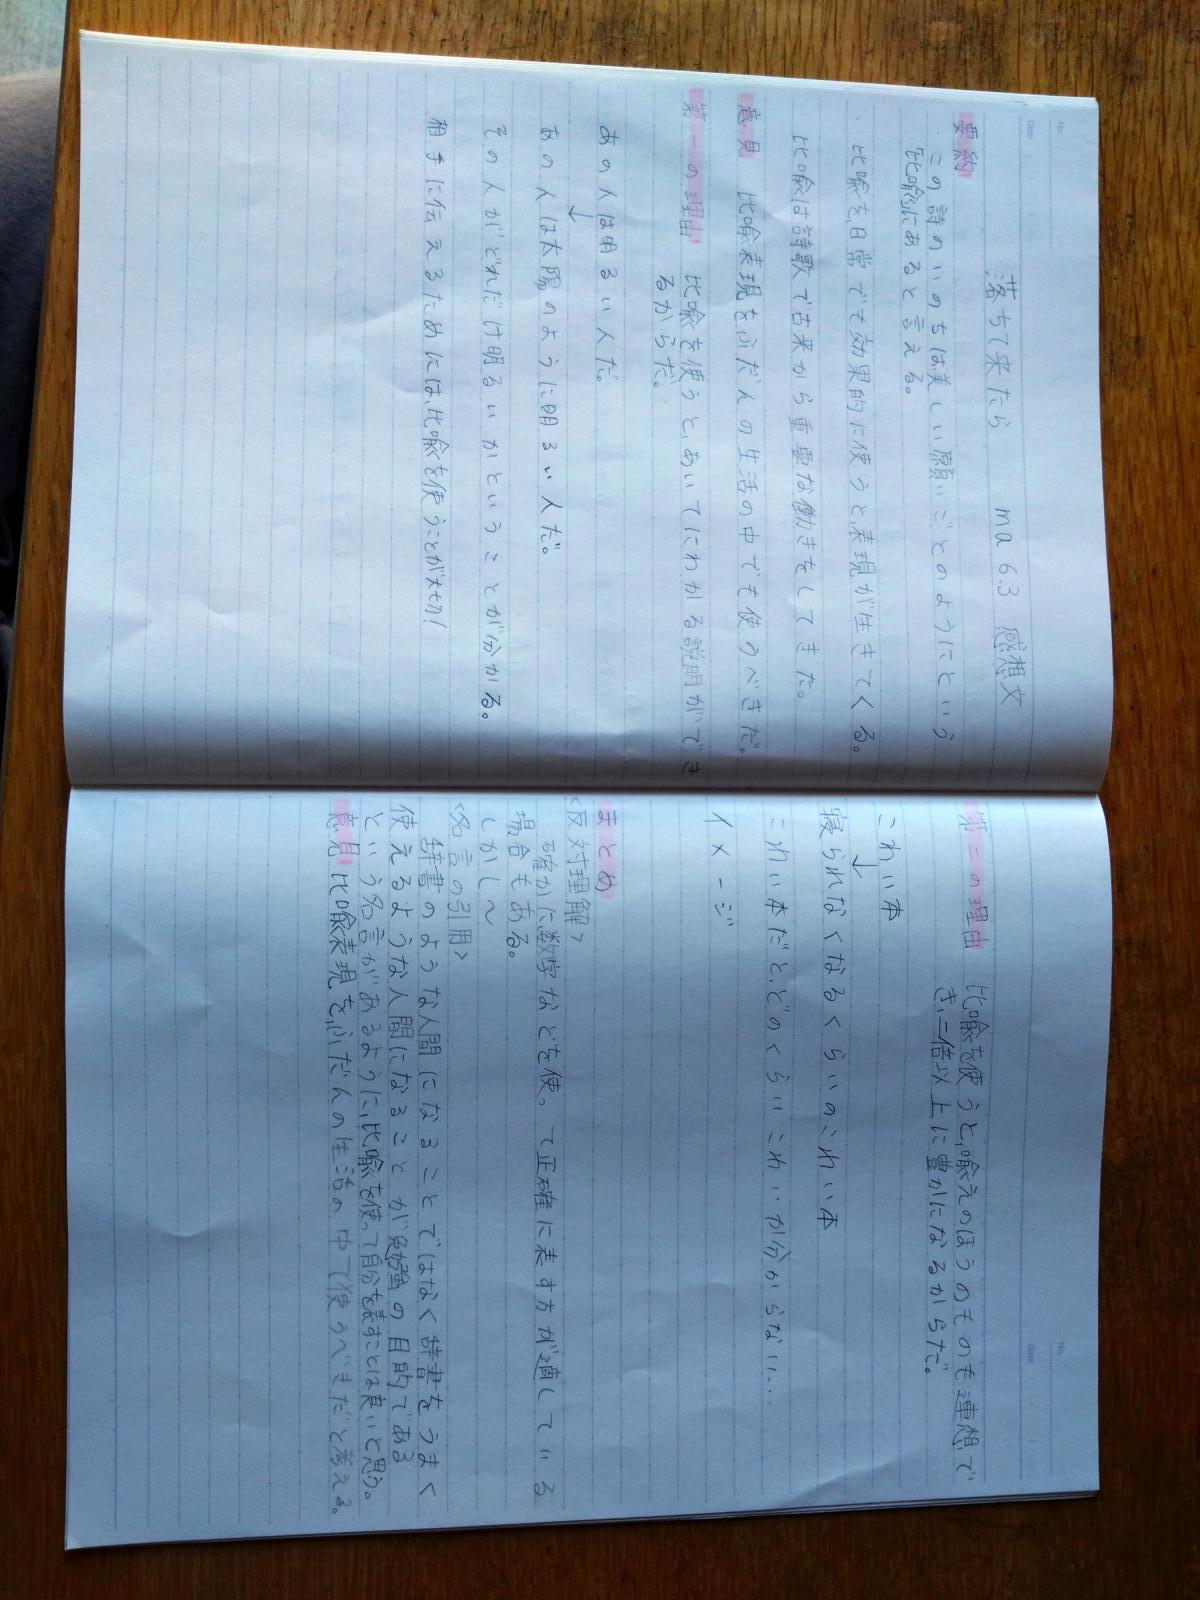 No.
Date
落ちて来たら ma 6.3 感想文
要約
この詩のいのちは美しい願いごとのようにという
比喩にあると言える。
比喩を日常でも効果的に使うと表現が生きてくる。
比喩は詩歌で古来から重要な働きをしてきた。
意見 比喩表現をふだんの生活の中でも使うべきだ。
第一の理由 比喩を使うと、あいてにわかる説明ができ
るからだ。
あの人は明るい人だ。
↓
あの人は太陽のように明るい人だ。
その人がどれだけ明るいかということが分かる。
相手に伝えるためには比喩を使うことが大切!
No.
Date
第二の理由 比喩を使うと、喩えのほうのものも連想で
き、二倍以上に豊かになるからだ。
こわい本
↓
寝られなくなるくらいのこわい本
こわい本だと、どのくらいこわいか分からない…
イメージ
まとめ
<反対理解>
確かに、数字などを使って正確に表す方が適している
場合もある。
しかし〜
<名言の引用>
辞書のような人間になることではなく辞書をうまく
使えるような人間になることが勉強の目的である
という名言があるように、比喩を使って自分を表すことは良いと思う。
意見 比喩表現をふだんの生活の中で使うべきだと考える。